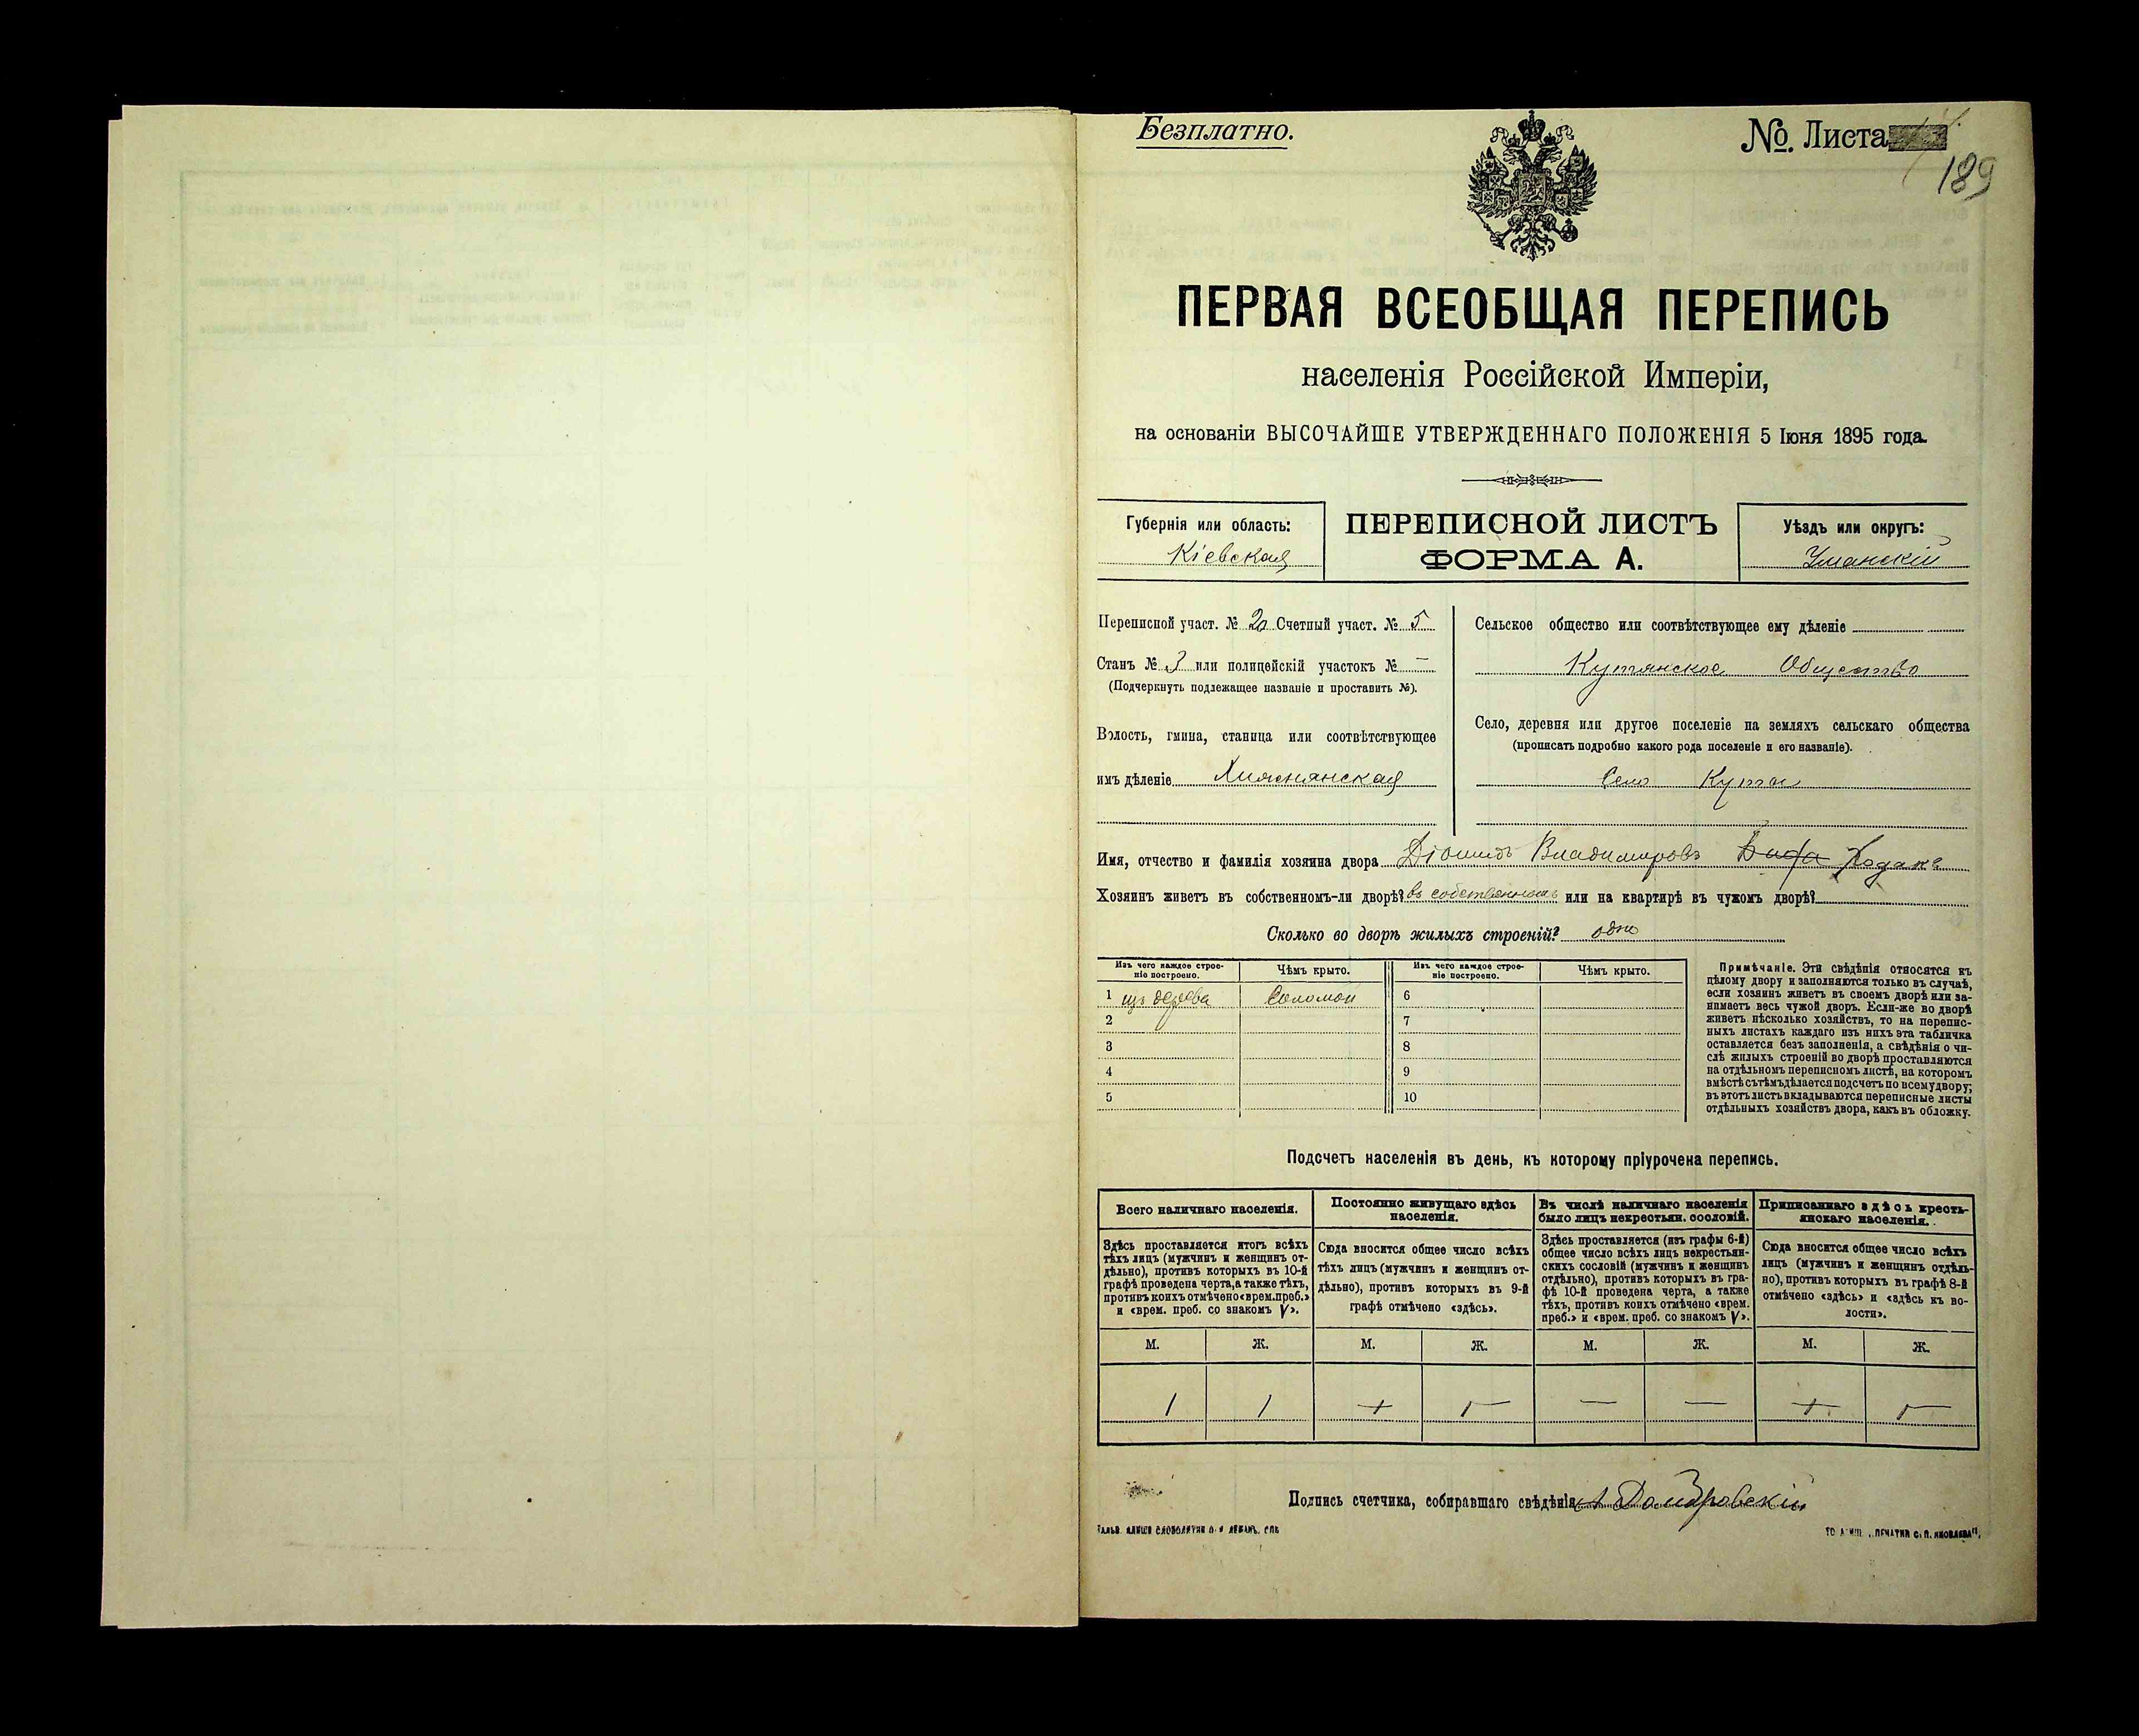 Безплатно.
№. Листа
189
ПЕРВАЯ ВСЕОБЩАЯ ПЕРЕПИСЬ
населенія Россійской Имперіи,
на основаніи ВЫСОЧАЙШЕ УТВЕРЖДЕННАГО ПОЛОЖЕНІЯ 5 Іюня 1895 года.
Губернія или область:
Кіевская
ПЕРЕПИСНОЙ ЛИСТЪ
ФОРМА А.
Уѣздъ или округъ:
Уманскій
Переписной участ. № 20 Счетный участ. № 5
Станъ № 3 или полицейскій участокъ № —
(Подчеркнуть подлежащее названіе и проставить №).
Волость, гмина, станица или соотвѣтствующее
имъ дѣленіе
Сельское общество или соотвѣтствующее ему дѣленіе
Кутянское Общество
Село, деревня или другое поселеніе на земляхъ сельскаго общества
(прописать подробно какого рода поселеніе и его названіе).
Село Куты
Имя, отчество и фамилія хозяина двора Діомидъ Владимировъ
Хозяинъ живетъ въ собственномъ-ли дворѣ? въ собственномъ или на квартирѣ въ чужомъ дворѣ?
Сколько во дворѣ жилыхъ строеній? одно
Изъ чего каждое строе-
ніе построено.
Чѣмъ крыто.
Изъ чего каждое строе-
ніе построено.
Чѣмъ крыто.
1 изъ дерева Соломой 6
2 7
3 8
4 9
5 10
Примѣчаніе. Эти свѣдѣнія относятся къ
цѣлому двору и заполняются только въ случаѣ,
если хозяинъ живетъ въ своемъ дворѣ или за-
нимаетъ весь чужой дворъ. Если-же во дворѣ
живетъ нѣсколько хозяйствъ, то на перепис-
ныхъ листахъ каждаго изъ нихъ эта табличка
оставляется безъ заполненія, а свѣдѣнія о чи-
слѣ жилыхъ строеній во дворѣ проставляются
на отдѣльномъ переписномъ листѣ, на которомъ
вмѣстѣ съ тѣмъ дѣлается подсчетъ по всему двору;
въ этотъ листъ вкладываются переписные листы
отдѣльныхъ хозяйствъ двора, какъ въ обложку.
Подсчетъ населенія въ день, къ которому пріурочена перепись.
Всего наличнаго населенія.
Здѣсь проставляется итогъ всѣхъ
тѣхъ лицъ (мужчинъ и женщинъ от-
дѣльно), противъ которыхъ въ 10-й
графѣ проведена черта, а также тѣхъ,
противъ коихъ отмѣчено «врем. преб.»
и «врем. преб. со знакомъ V».
Постоянно живущаго здѣсь
населенія.
Сюда вносится общее число всѣхъ
тѣхъ лицъ (мужчинъ и женщинъ от-
дѣльно), противъ которыхъ въ 9-й
графѣ отмѣчено «здѣсь».
Въ числѣ наличнаго населенія
было лицъ некрестьян. сословій.
Здѣсь проставляется (изъ графы 6-й)
общее число всѣхъ лицъ некрестьян-
скихъ сословій (мужчинъ и женщинъ
отдѣльно), противъ которыхъ въ гра-
фѣ 10-й проведена черта, а также
тѣхъ, противъ коихъ отмѣчено «врем.
преб.» и «врем. преб. со знакомъ V».
Приписаннаго здѣсь кресть-
янскаго населенія.
Сюда вносится общее число всѣхъ
лицъ (мужчинъ и женщинъ отдѣль-
но), противъ которыхъ въ графѣ 8-й
отмѣчено «здѣсь» и «здѣсь къ во-
лости».
М. Ж. М. Ж. М. Ж. М. Ж.
1 1 — —
Подпись счетчика, собиравшаго свѣдѣнія